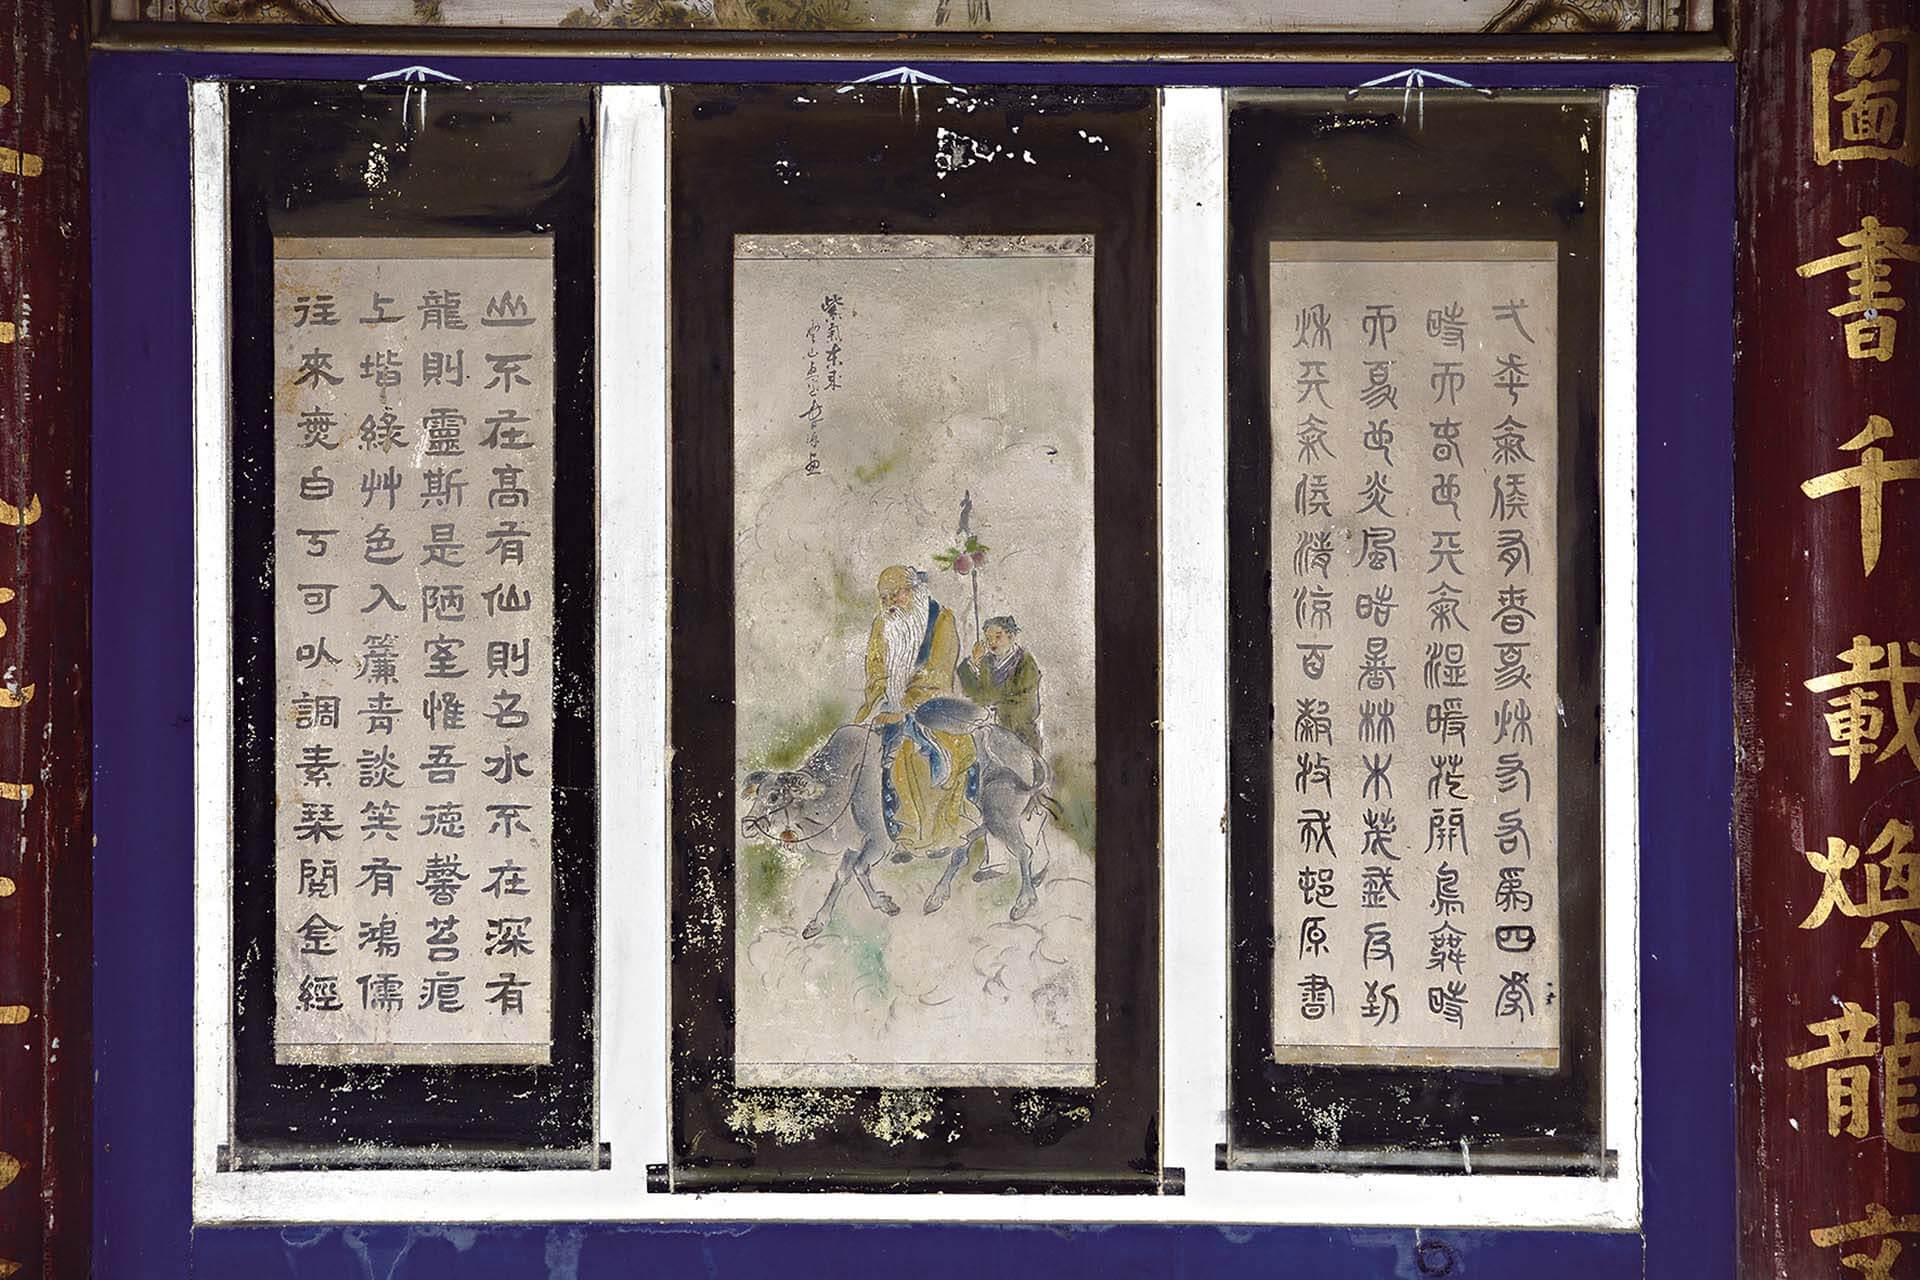 圖書千載煥龍文
弌年氣候有春夏秋冬名為四季
時而春也天氣溫暖花開鳥舞時
而夏也炎風酷暑林木茂盛及到
秋天氣候清涼百穀收成邨原書
紫氣東來
山不在高有仙則名水不在深有
龍則靈斯是陋室惟吾德馨苔痕
上堦綠艸色入簾青談笑有鴻儒
往來無白丁可以調素琴閱金經